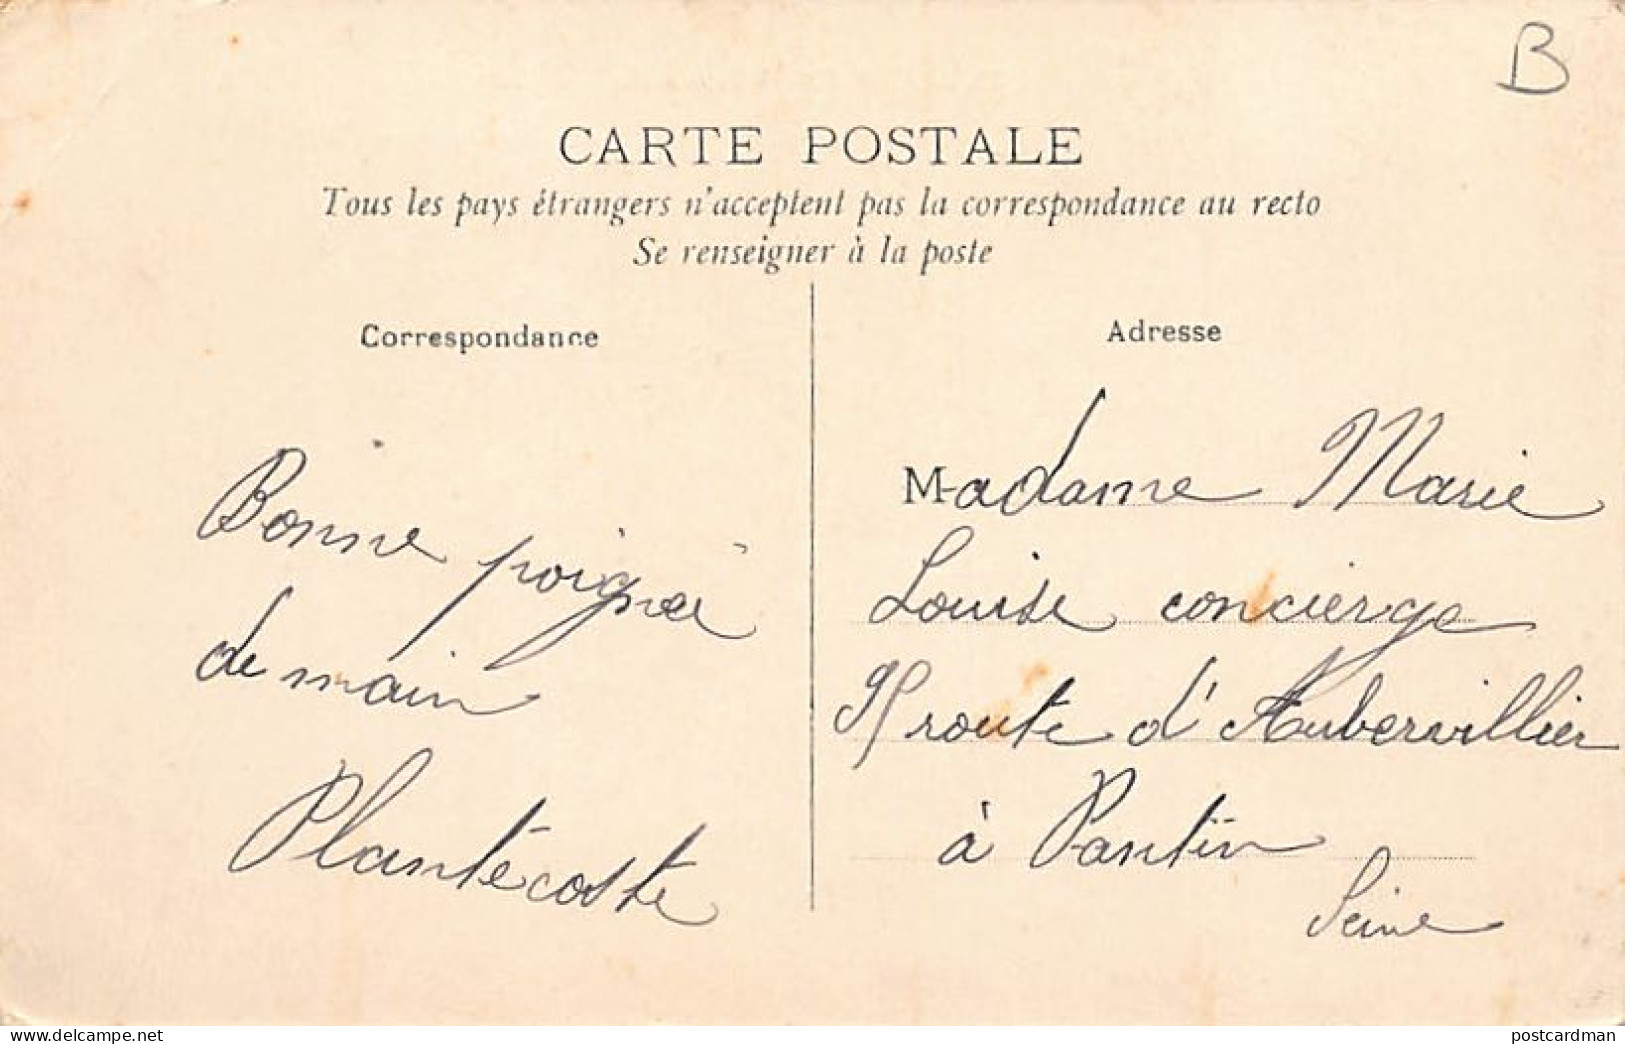 B
CARTE POSTALE
Tous les pays étrangers n'acceptent pas la correspondance au recto
Se renseigner à la poste
Correspondance
Bonne poignée
de main
Plantécoste
Adresse
Madame Marie
Louise concierge
route d'Aubervillier
à Pantin
Seine
www.delcampe.net
postcardman